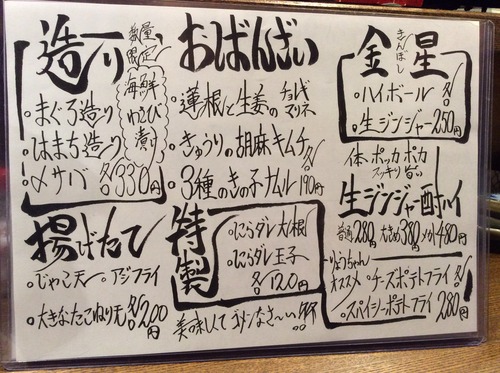 造り
数量限定
海鮮
わさび
漬け
・まぐろ造り
・はまち造り
・〆サバ 各330円
おばんざい
・蓮根と生姜のチョレギマリネ
・きゅうりの胡麻キムチ
・3種のきの子ナムル 各190円
金星
きんぼし
・ハイボール
・生ジンジャー 各250円
体ポッカポカ
スッキリ旨い
生ジンジャー酎ハイ
普通280円 大きめ380円 メガ480円
揚げたて
・じゃこ天 ・アジフライ
・大きなたこねり天 各200円
特製
・にらダレ大根
・にらダレ玉子
各120円
美味しくてゴメンなさ〜い
りょうちゃん
オススメ
・チーズポテトフライ
・スパイシーポテトフライ 各280円